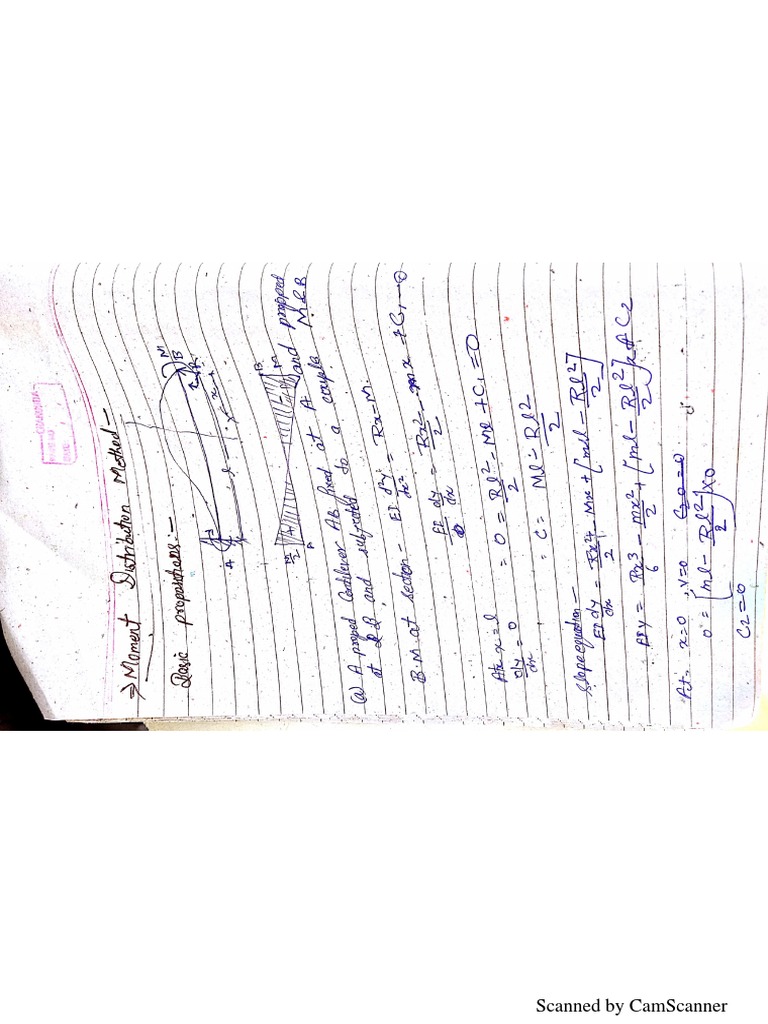 ⇒ Moment Distribution Method -
Basic propositions:-
A B M R l x
M/2 + A B M
(a) A proped Cantilever AB fixed at A and propped
at B, and subjected to a couple M & B
B.M. at section - EI d²y/dx² = Rx - M
EI dy/dx = Rx²/2 - mx + C₁ -①
At x = l
dy/dx = 0 = 0 = Rl²/2 - Ml + C₁ = 0
∴ C = Ml - Rl²/2
Slope equation -
EI dy/dx = Rx²/2 - Mx + [ml - Rl²/2]
EI y = Rx³/6 - mx²/2 + [ml - Rl²/2]x + C₂
At x=0, y=0
0 = [ml - Rl²/2] x 0
C₂ = 0
Scanned by CamScanner